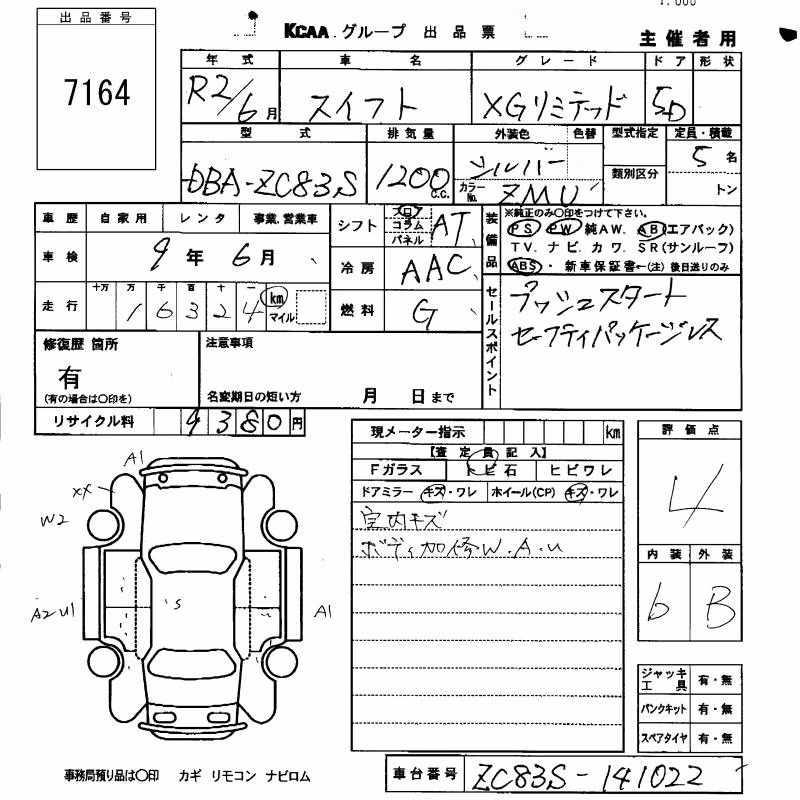 1.000
出品番号
7164
KCAA グループ 出品票
主催者用
年式 車名 グレード ドア 形状
R2/6月 スイフト XGリミテッド 5D
型式 排気量 外装色 色替 型式指定 定員・積載
DBA-ZC83S 1200c.c. シルバー カラーNo. ZMU 類別区分 5名 トン
車歴 自家用 レンタ 事業.営業車
シフト フロア コラム パネル AT
装備品 ※純正のみ〇印をつけて下さい。
PS PW 純AW. AB(エアバック)
TV. ナビ. カワ. SR(サンルーフ)
ABS・新車保証書←(注) 後日送りのみ
車検 9年6月
冷房 AAC
走行 十万 万 千 百 十 一 16324 km マイル
燃料 G
セールスポイント
プッシュスタート
セーフティパッケージレス
修復歴 箇所
有
(有の場合は〇印を)
注意事項
名変期日の短い方 月 日まで
リサイクル料 9380円
現メーター指示 km
【査定員記入】
Fガラス トビ石 ヒビワレ
ドアミラー キズ・ワレ ホイール(CP) キズ・ワレ
室内キズ
ボディ加修W.A.U
評価点
4
内装 外装
6 B
A1
XX
W2
A2 U1
S
A1
ジャッキ工具 有・無
パンクキット 有・無
スペアタイヤ 有・無
事務局預り品は〇印 カギ リモコン ナビロム
車台番号 ZC83S-141022